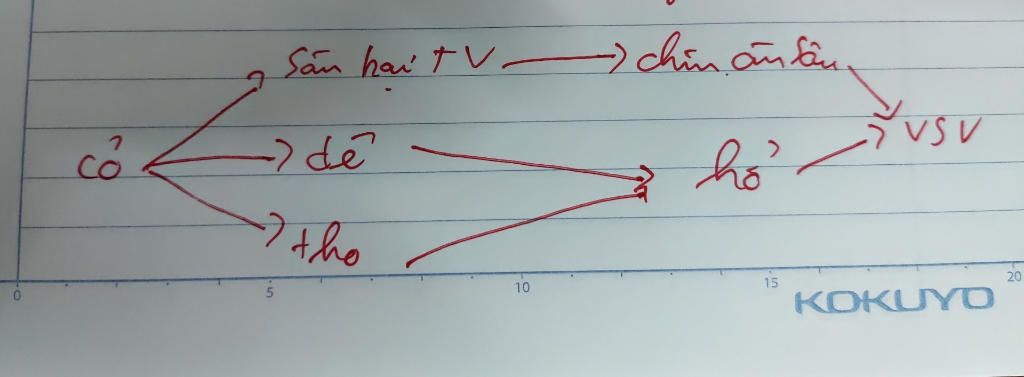 sâu hại TV → chim ăn sâu
cỏ → dê → hổ → VSV
thỏ
0 5 10 15 20
KOKUYO